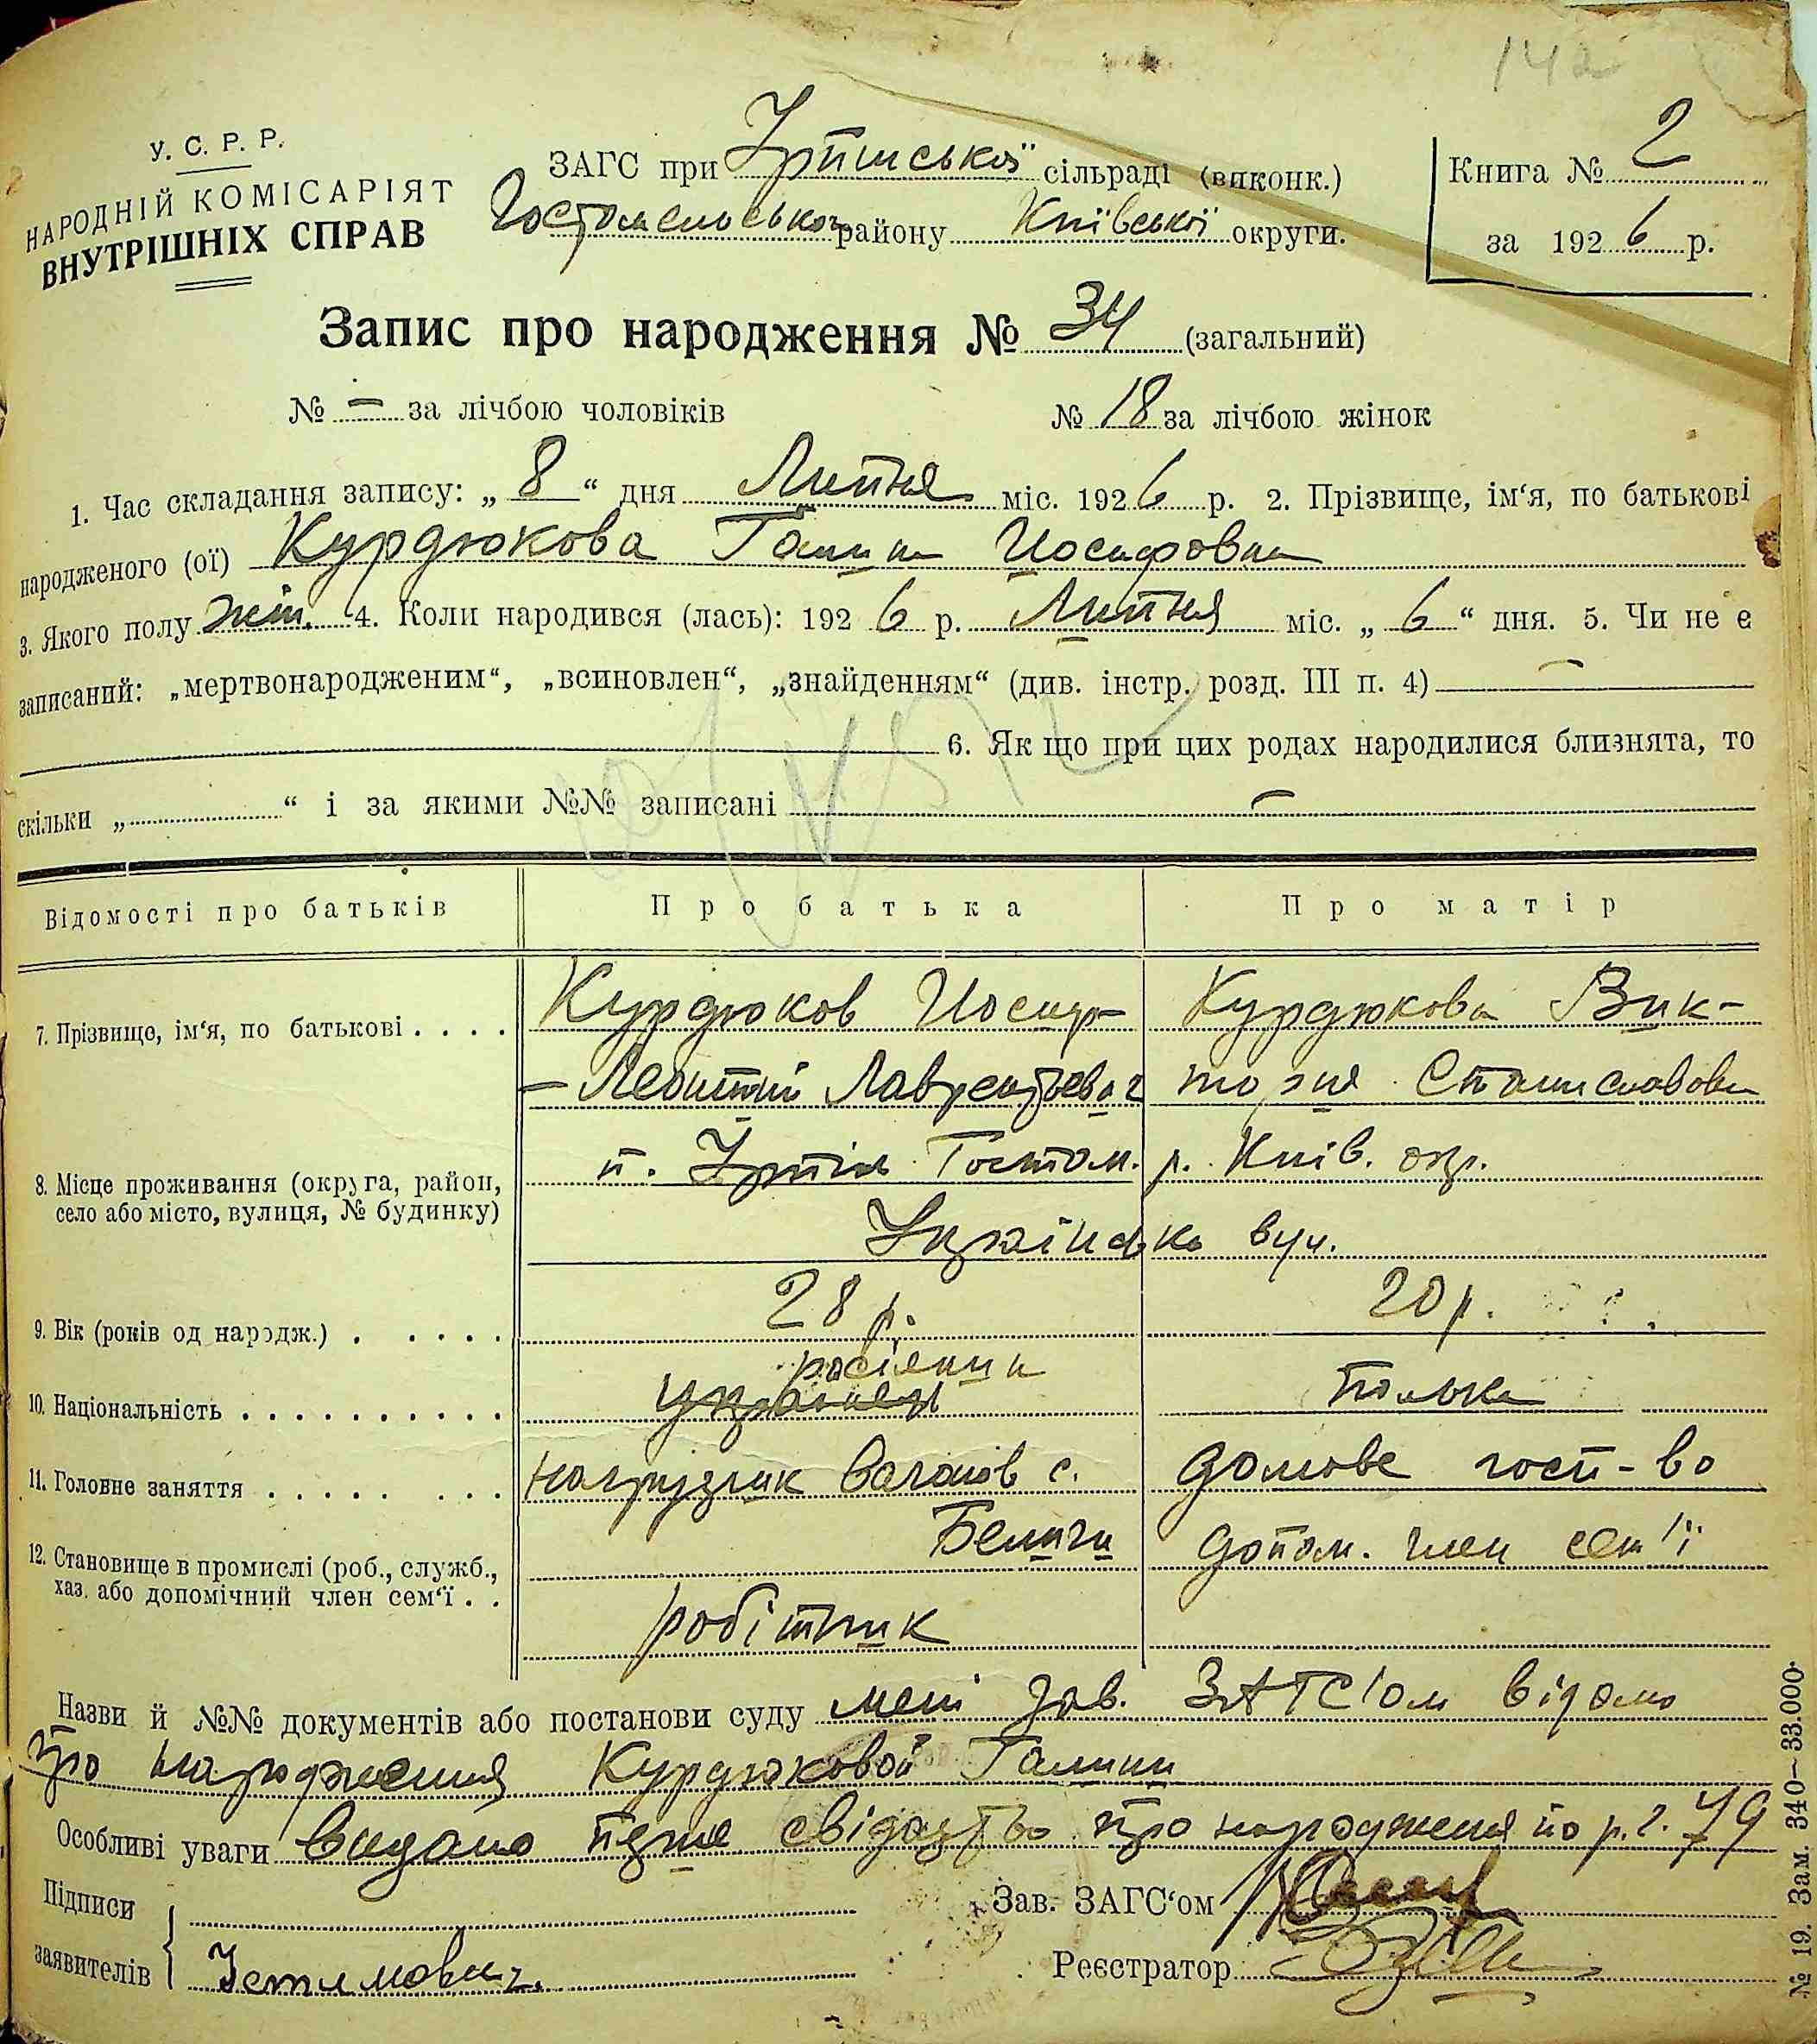 142
У. С. Р. Р.
НАРОДНІЙ КОМІСАРІЯТ
ВНУТРІШНІХ СПРАВ
ЗАГС при Ірпіньської сільраді (виконк.)
Гостомельського району Київської округи.
Книга № 2
за 1926 р.
Запис про народження № 34 (загальний)
№ — за лічбою чоловіків
№ 18 за лічбою жінок
1. Час складання запису: „8“ дня Липня міс. 1926 р. 2. Прізвище, ім‘я, по батькові
народженого (ої) Курдюкова Галина Иосифовна
3. Якого полу жін. 4. Коли народився (лась): 1926 р. Липня міс. „6“ дня. 5. Чи не є
записаний: „мертвонародженим“, „всиновлен“, „знайденням“ (див. інстр. розд. III п. 4) —
6. Як що при цих родах народилися близнята, то
скільки „ “ і за якими №№ записані —
Відомості про батьків
Про батька
Про матір
7. Прізвище, ім‘я, по батькові . . . .
Курдюков Иосиф-
-Леонтій Лаврентьевич
Курдюкова Вик-
торія Станиславовна
8. Місце проживання (округа, район,
село або місто, вулиця, № будинку)
п. Ірпінь Гостом. р. Київ. окр.
Українська вул.
9. Вік (років од народж.) . . . . .
28 р.
20 р.
10. Національність . . . . . . . . . .
росіянин
українец
полька
11. Головне заняття . . . . . . . .
нагрузчик вагонів с.
Беличи
домове госп-во
12. Становище в промислі (роб., служб.,
хаз. або допомічний член сем‘ї . .
робітник
допом. член сем'ї
Назви й №№ документів або постанови суду мені зав. ЗАГС'ом відомо
про народження Курдюковой Галини
Особливі уваги видано свідоцтво про народження по р. г. 79
Підписи
заявителів
Зав. ЗАГС‘ом
Реєстратор
№ 19. Зам. 340—33.000.